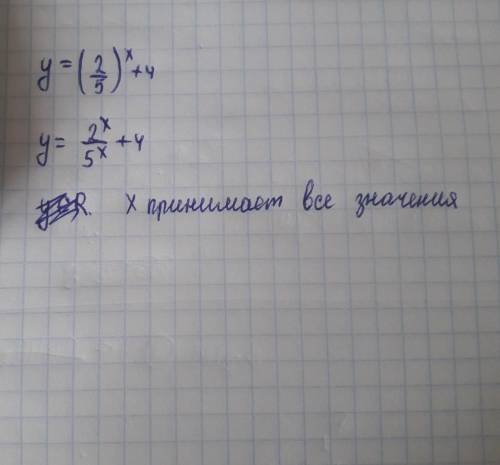 y = (2/5)^x + 4
y = 2^x/5^x + 4
x принимает все значения